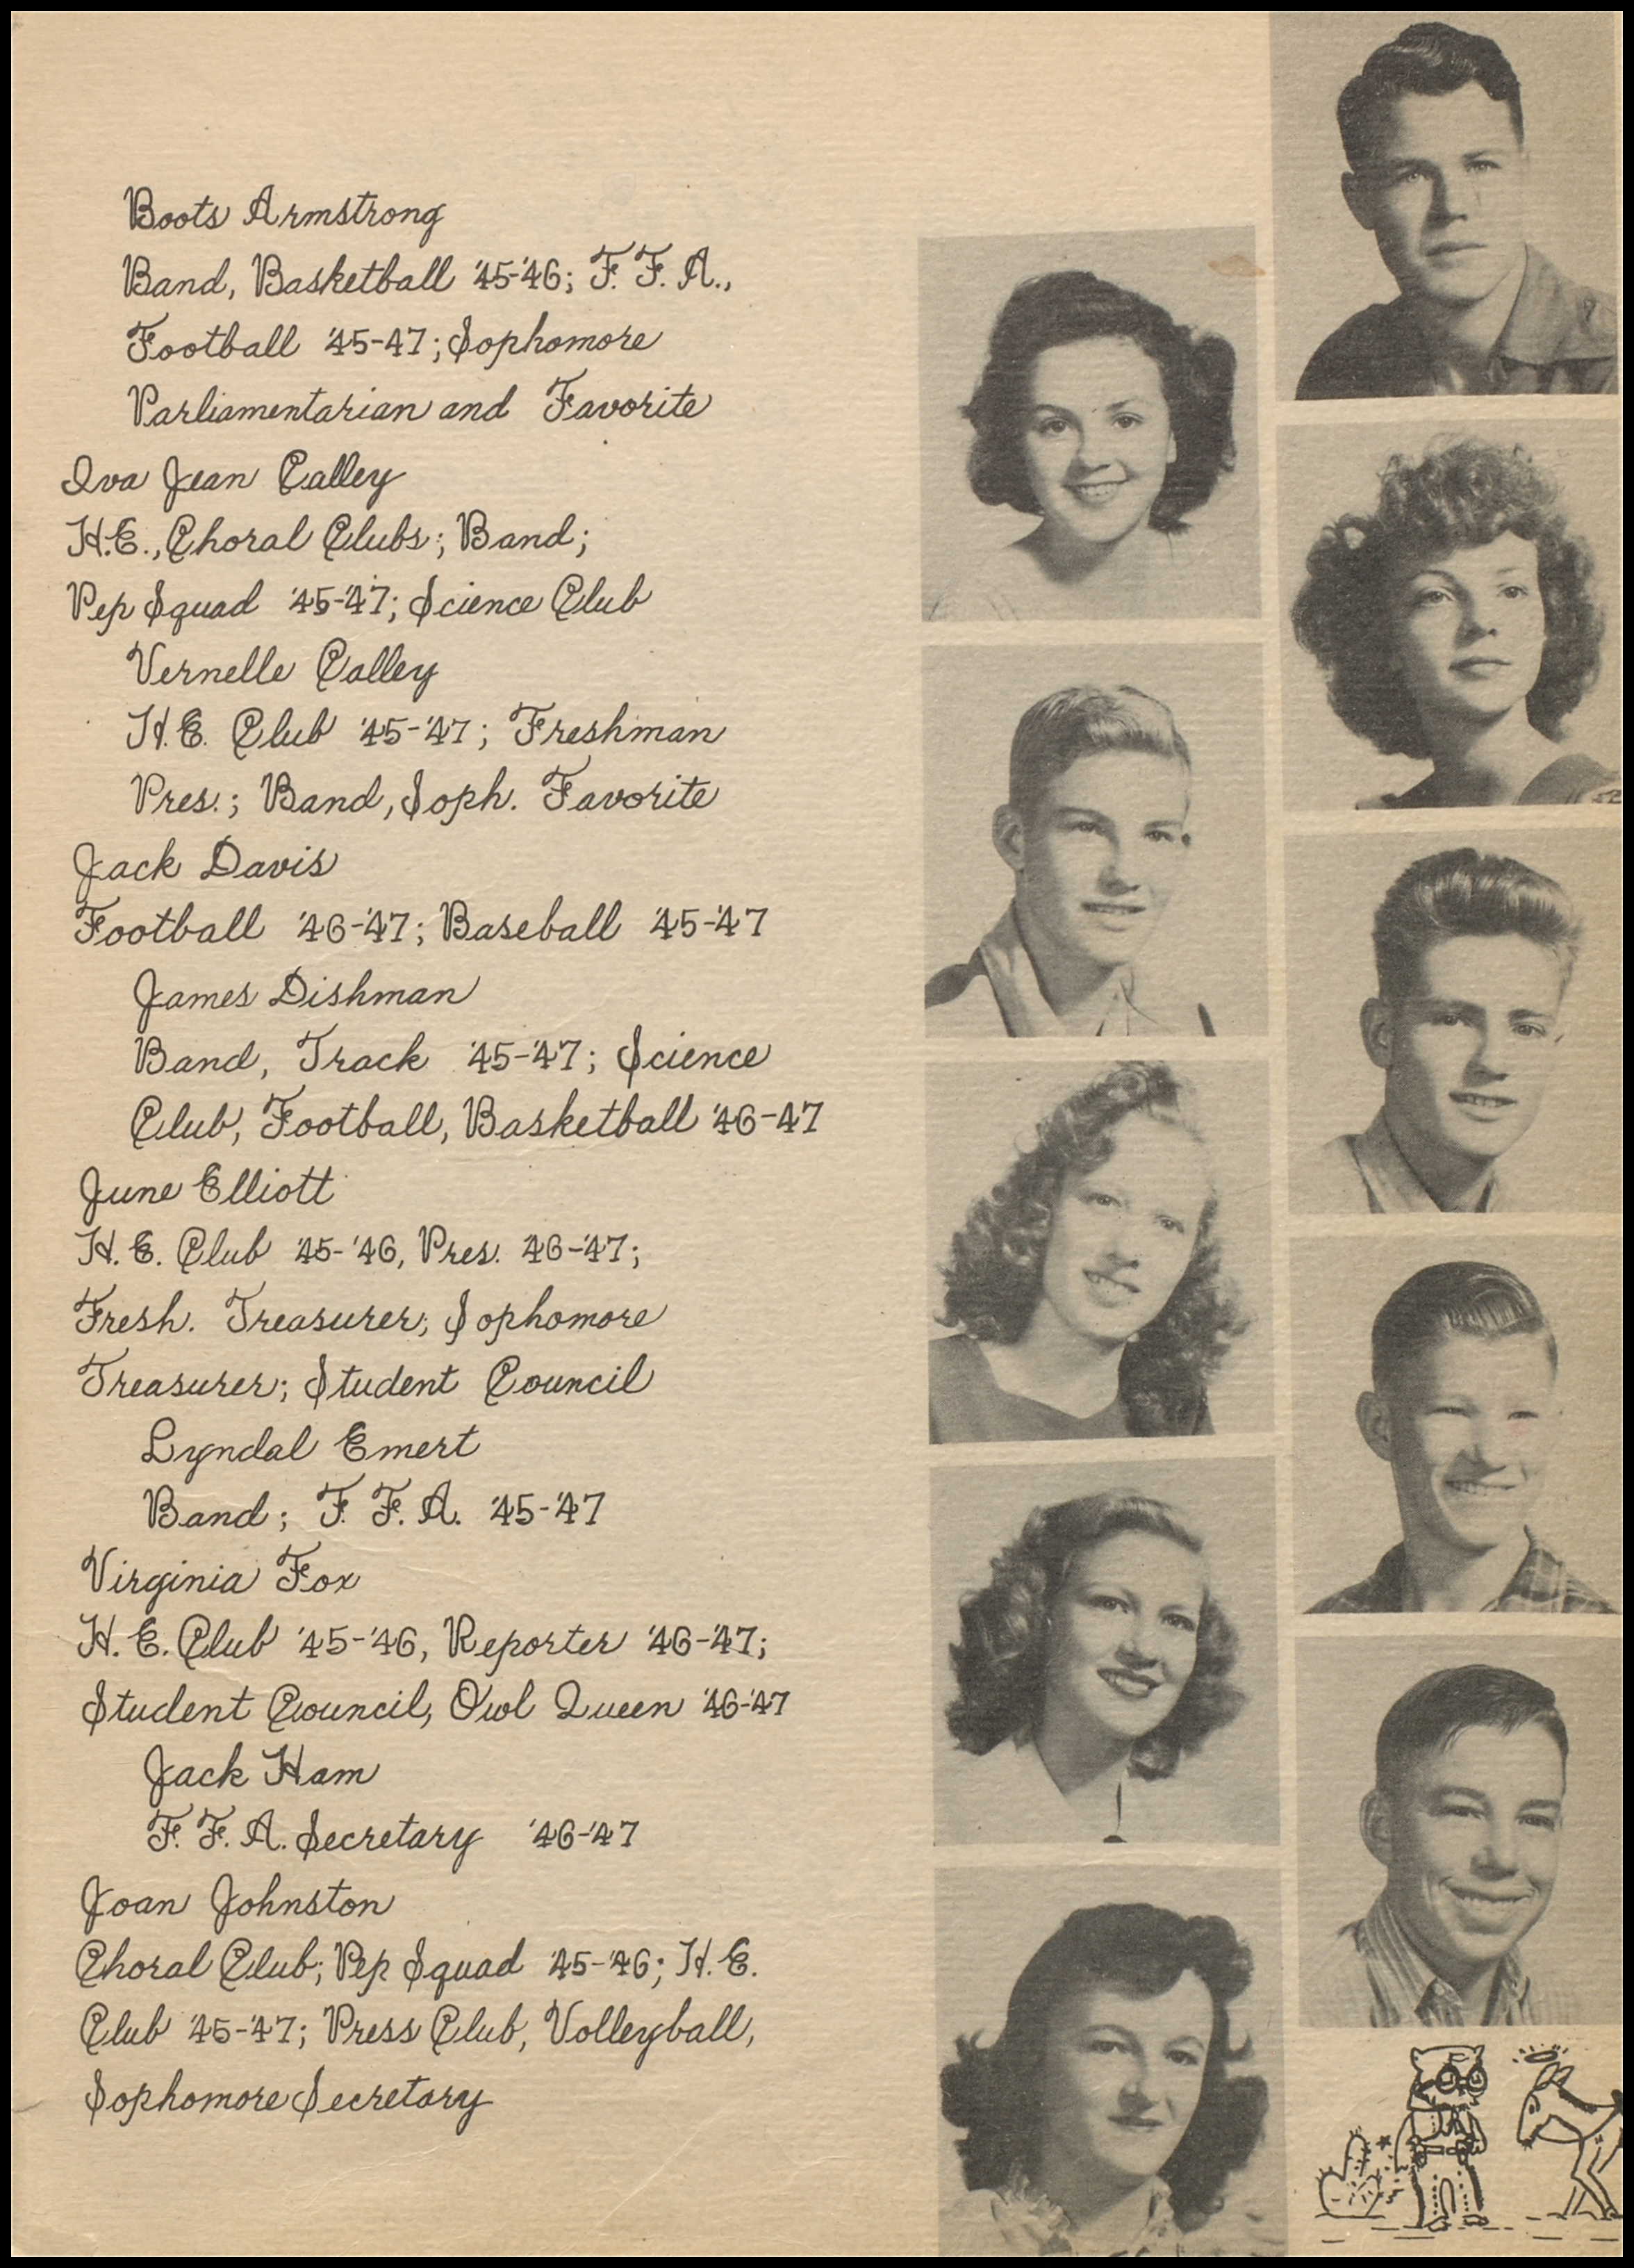 Boots Armstrong
Band, Basketball '45-'46; F. F. A.,
Football '45-47; Sophomore
Parliamentarian and Favorite
Iva Jean Calley
H.E., Choral Clubs; Band;
Pep Squad '45-'47; Science Club
Vernelle Calley
H.E. Club '45-'47; Freshman
Pres.; Band, Soph. Favorite
Jack Davis
Football '46-'47; Baseball '45-'47
James Dishman
Band, Track '45-'47; Science
Club, Football, Basketball '46-47
June Elliott
H. E. Club '45-'46, Pres. '46-'47;
Fresh. Treasurer; Sophomore
Treasurer; Student Council
Lyndal Emert
Band; F. F. A. '45-'47
Virginia Fox
H. E. Club '45-'46, Reporter '46-'47;
Student Council, Owl Queen '46-'47
Jack Ham
F. F. A. Secretary '46-'47
Joan Johnston
Choral Club; Pep Squad '45-'46; H. E.
Club '45-'47; Press Club, Volleyball,
Sophomore Secretary